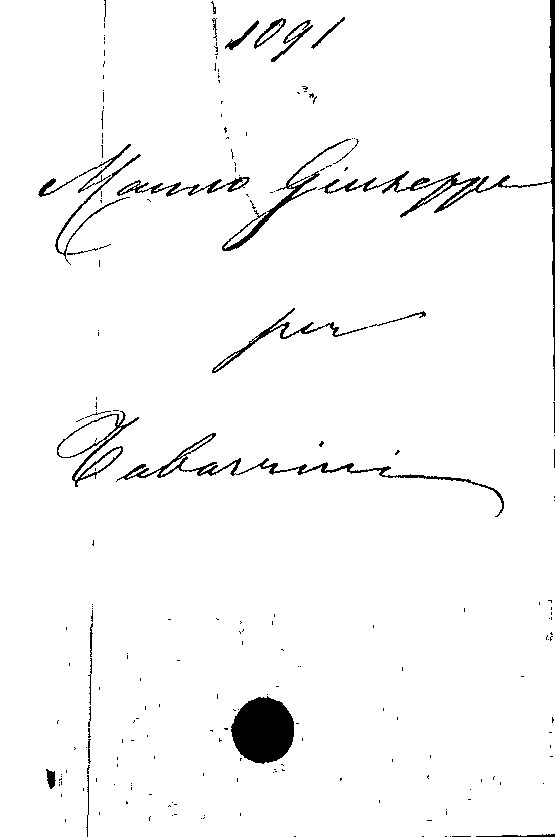 1091
Manno Giuseppe
per
Tabarrini